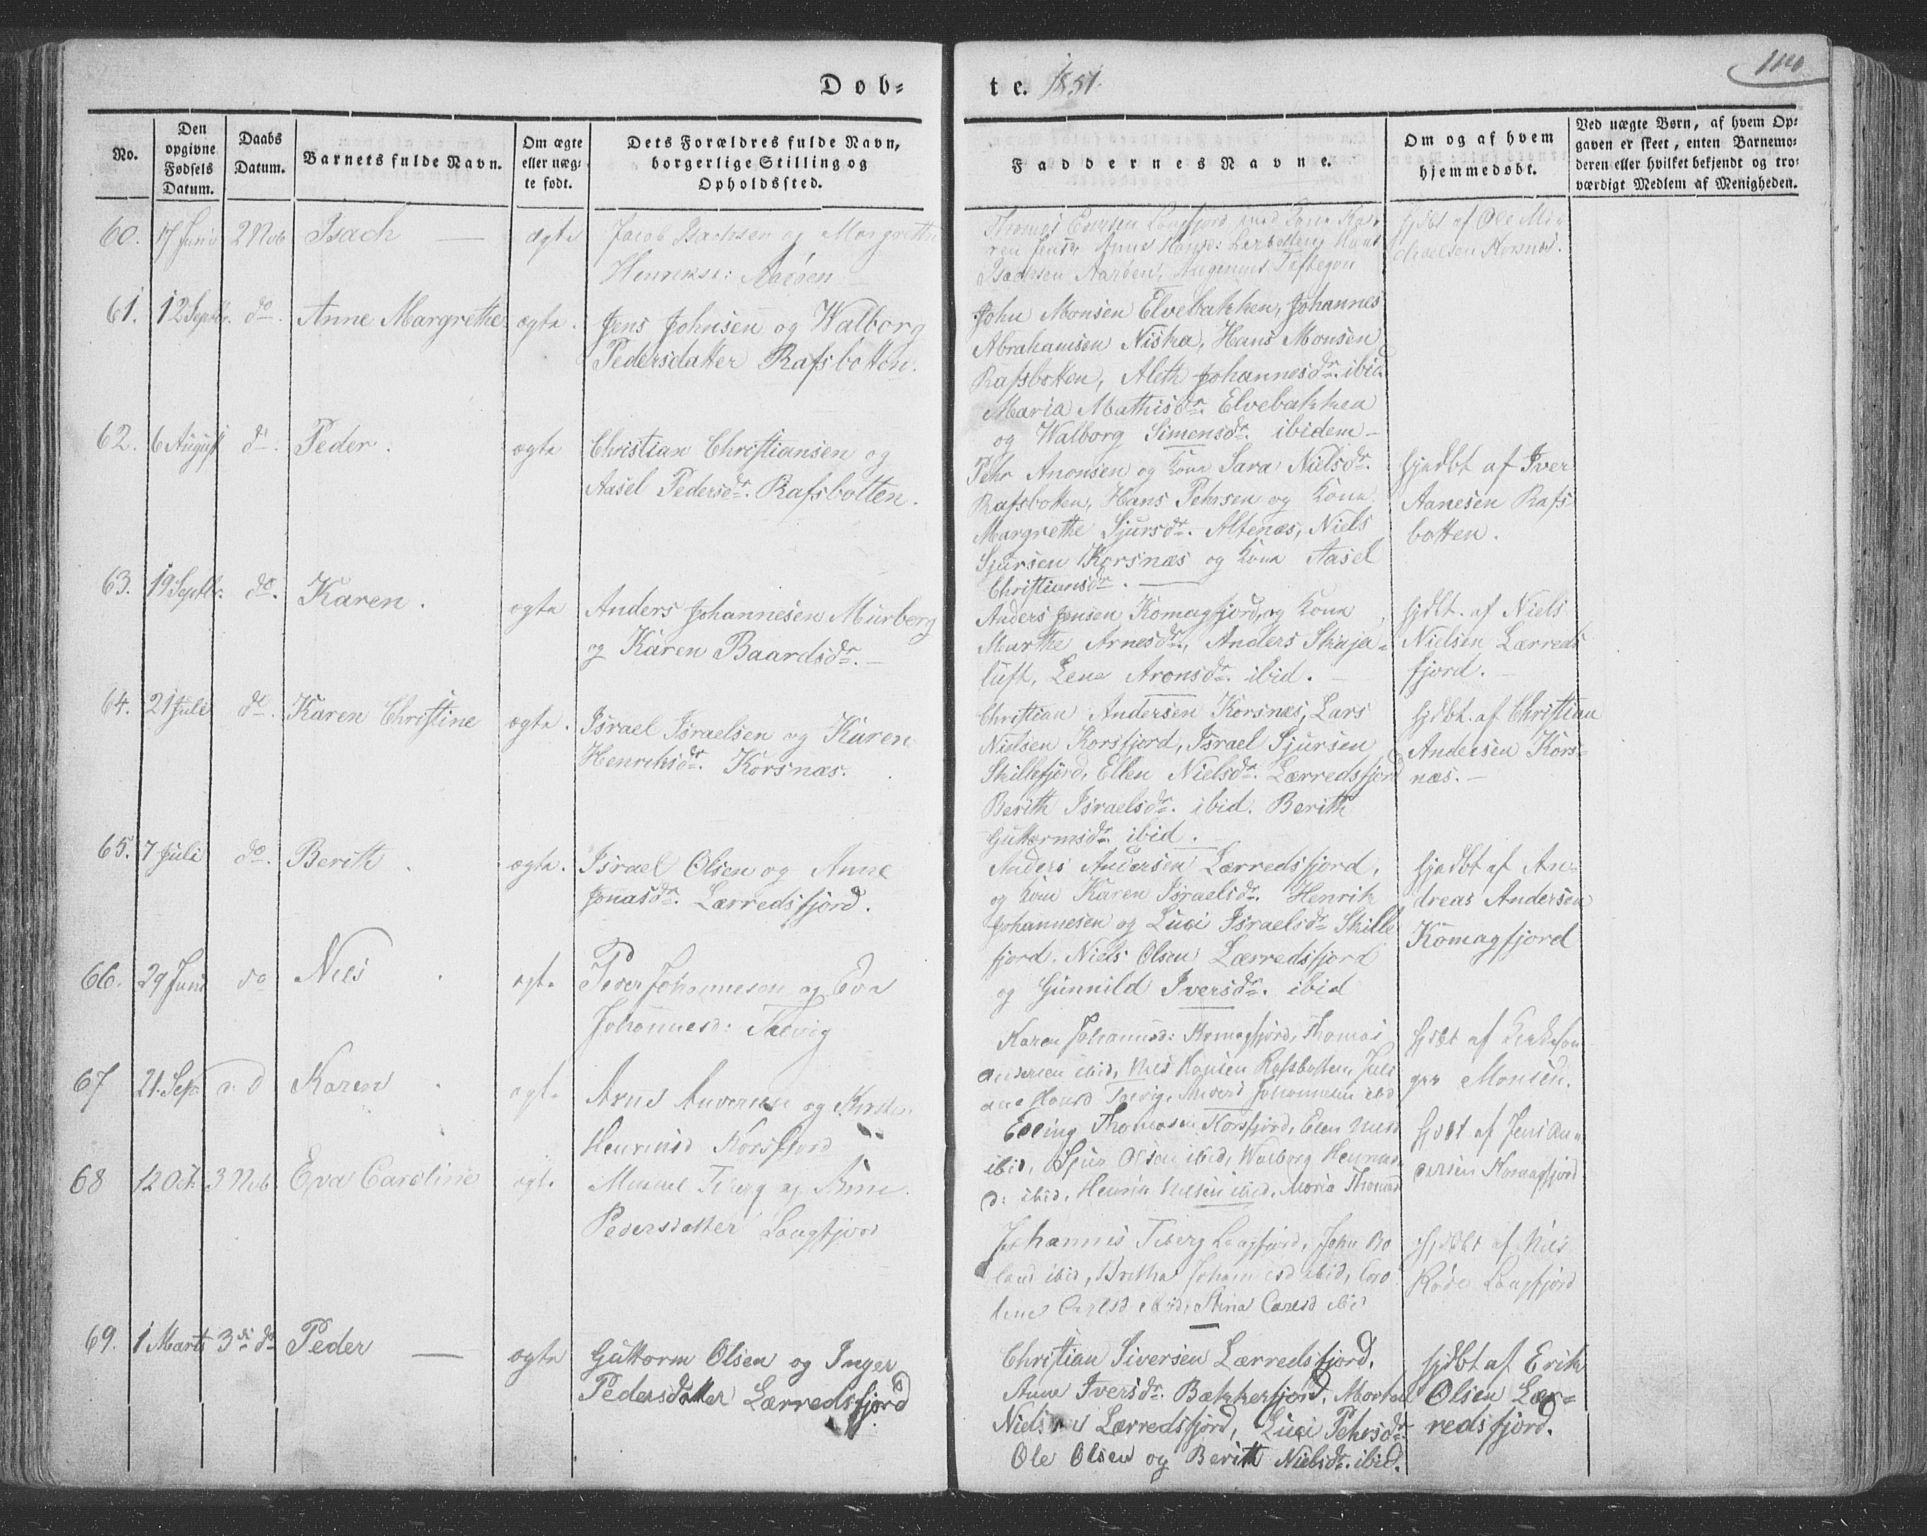 Døb-
te. 1851.
No.
Den opgivne Fødsels Datum.
Daabs Datum.
Barnets fulde Navn.
Om ægte eller uægte født.
Dets Forældres fulde Navn, borgerlige Stilling og Opholdssted.
Faddernes Navne.
Om og af hvem hjemmedøbt.
Ved uægte Børn, af hvem Op-
gaven er skeet, enten Barnemo-
deren eller hvilket bekjendt og tro-
værdigt Medlem af Menigheden.
60. 17 Juni 2 Nob Isach — ægte
Jacob Isachsen og Margrethe
Henriksd: Aarøen
Thomas Langfjord med Kona Ka-
ren Jensd: Anne
Isachsen Aarøen,
hjdbt af Ole Mi-
chaelsen Korsnæs.
61. 12 Septbr. do. Anne Margrethe ægte.
Jens Johnsen og Walborg
Pedersdatter Rafsbotten.
John Monsen Elvebakken, Johannes
Abrahamsen Niska, Hans Monsen
Rafsbotten, Aleth Johannesdr. ibid.
Maria Mathisdr. Elvebakken
og Walborg Simensdr. ibidem —
62. 6 August do. Peder. ægte
Christian Christiansen og
Aasel Pedersdr. Rafsbotten.
Pehr Aronsen og Kona Sara Nielsdr.
Rafsbotten, Hans Pehrsen og Kona
Margrethe Sjursdr. Altenæs, Niels
Sjursen Korsnæs og Kona Aasel
Christiansdr.
hjadbt af Iver
Aanesen Rafs-
botten.
63. 19 Septbr. do. Karen. ægte
Anders Johannesen Murberg
og Karen Baardsdr. —
Anders Jensen Komagfjord, og Kona
Marthe Arnesdr., Anders Skaja-
luft, Lene Aronsdr. ibid. —
hjdbt. af Niels
Nielsen Lærreds
fjord. —
64. 21 Juli do. Karen Christine ægte.
Israel Israelsen og Karen
Henriksdr. Korsnæs.
Christian Andersen Korsnæs, Lars
Nielsen Korsfjord, Israel Sjursen
Skillefjord, Ellen Nielsdr. Lærredsfjord
Berith Israelsdr. ibid. Berith
Guttormsdr. ibid.
hjdbt. af Christian
Andersen Kors-
næs. —
65. 7 Juli do. Berith. ægte.
Israel Olsen og Anne
Jonasdr. Lærredsfjord.
Anders Andersen Lærredsfjord,
og Kona Karen Israelsdr. Henrik
Johannesen og Luci Israelsdr. Skille
fjord. Niels Olsen Lærredsfjord
og Gunnild Iversdr. ibid
hjadbt af An-
dreas Andersen
Komagfjord
66. 29 Juni do Niels ægte
Peder Johannesen og Eva
Johannesd: Talvig
Karen Johannesd: Komagfjord, Thomas
Andersen ibid, Niels Hansen Rafsbotten, Juli
ane Hansd Talvig, Johannesen ibid
hjdbt af Kirkesan
ger Monsen.
67 21. Sep. Karen ægte
Arne og Kirsten
Henriksd Korsfjord
Elling Thomasen Korsfjord, Elen Nielsd
ibid, Sjur Olsen ibid, Walborg Henriks
d: ibid, Henrik Nilsen ibid, Maria Thomasd
hjdbt af Jens An-
dersen Komagfjord
68 12 Oct. 3 Nob Eva Caroline ægte
Tiberg og Stine
Pedersdatter Langfjord
Johannes Tiberg Langfjord, John Ro
land ibid, Britha Johannesd ibid, Caro
line Carlsd ibid, Stina Carlsd ibid
hjdbt af Niels
Røde Langfjord
69. 1 Marts 3 do Peder — ægte
Guttorm Olsen og Inger
Pedersdatter Lærredsfjord
Christian Siversen Lærredsfjord,
Anne Iversdr. Bækkerfjord, Morten
Nielsen Lærredsfjord, Luci Pehrsdr.
Ole Olsen og Berith Nielsdr. ibid.
hjdbt af Erik
Olsen Lær-
redsfjord.